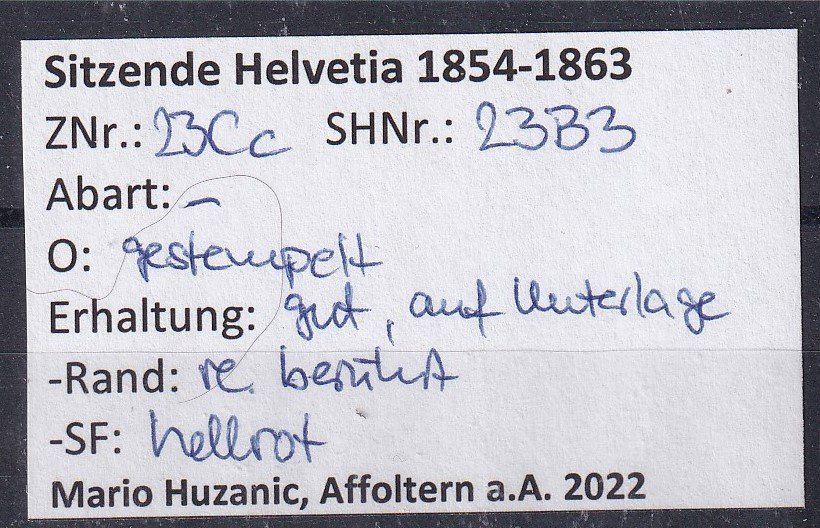 Sitzende Helvetia 1854-1863
ZNr.: 23Cc SHNr.: 23B3
Abart: –
O: gestempelt
Erhaltung: gut, auf Unterlage
-Rand: re. berührt
-SF: hellrot
Mario Huzanic, Affoltern a.A. 2022